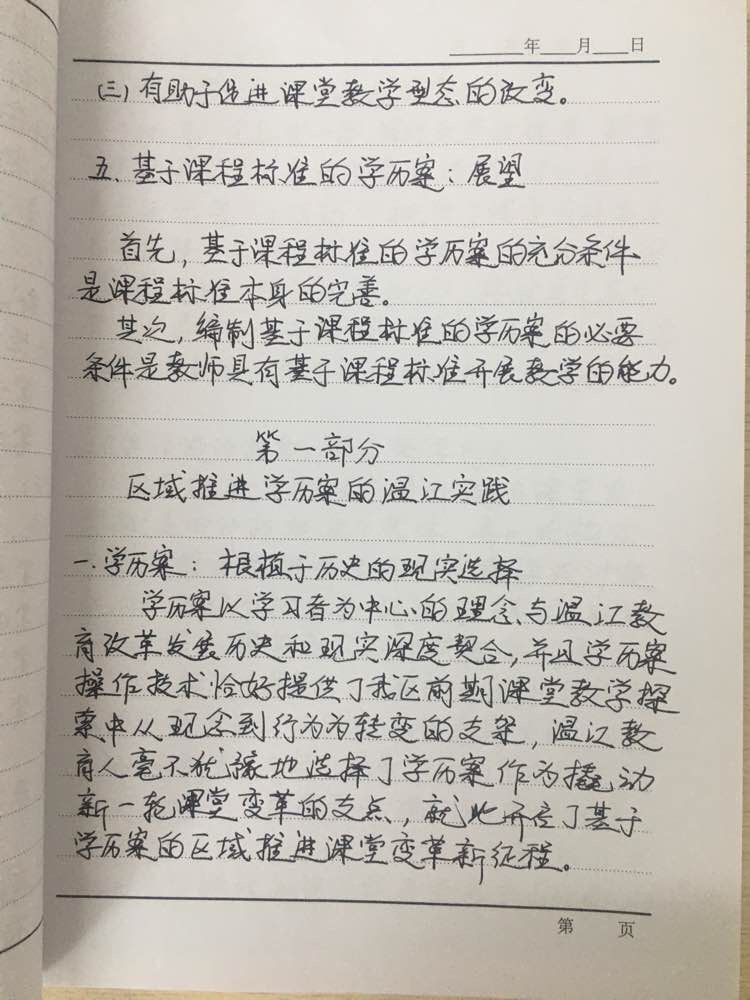 年 月 日
(三)有助于促进课堂教学型态的改变。
五、基于课程标准的学历案：展望
首先，基于课程标准的学历案的充分条件
是课程标准本身的完善。
其次，编制基于课程标准的学历案的必要
条件是教师具有基于课程标准开展教学的能力。
第一部分
区域推进学历案的温江实践
一.学历案：根植于历史的现实选择
学历案以学习者为中心的理念与温江教
育改革发展历史和现实深度契合，并且学历案
操作技术恰好提供了我区前期课堂教学探
索中从观念到行为为转变的支架，温江教
育人毫不犹豫地选择了学历案作为撬动
新一轮课堂变革的支点，就此开启了基于
学历案的区域推进课堂变革新征程。
第 页